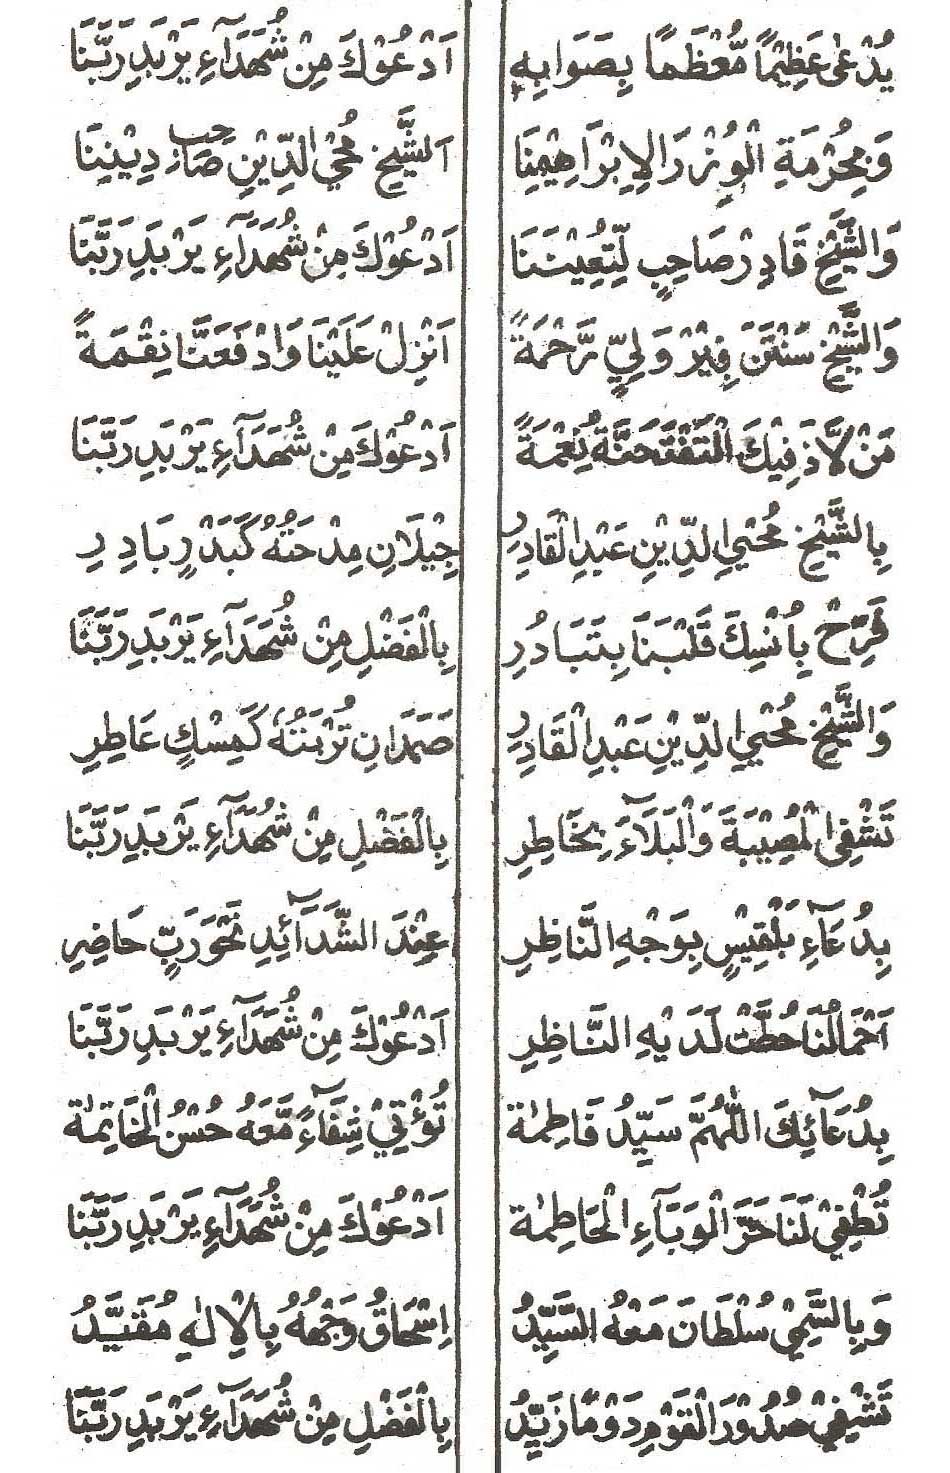 يُدْعٰى عَظِيْمًا مُّعْظَمًا بِصَوَابِهٖ اَدْعُوْكَ مِنْ شُهَدَآءِ يَرْبَدِ رَبَّنَا
وَمِحْرَمَةِ الْوُزْرَ الِاِبْرَاهِيْمِنَا اَلشَّيْخِ مُحْيِ الدِّيْنِ صَاحِبِ دِيْنِنَا
وَالشَّيْخِ قَادِرْ صَاحِبٍ لِّتُعِيْنَنَا اَدْعُوْكَ مِنْ شُهَدَآءِ يَرْبَدِ رَبَّنَا
وَالشَّيْخِ سَنْتَنْ فِيْرْ وَلِيٍّ رَّحْمَةً اَنْزِلْ عَلَيْنَا وَادْفَعَنَّا نِقْمَةً
مَنْ لَّاذَ فِيْكَ الْتَفْتَحَنَّهٗ نِعْمَةً اَدْعُوْكَ مِنْ شُهَدَآءِ يَرْبَدِ رَبَّنَا
بِالشَّيْخِ مُحْيِي الدِّيْنِ عَبْدِ الْقَادِرِ جِيْلَانِ مِدْحَتُهُ كَبَدْرٍ بَادِرِ
فَرِّحْ بِاُنْسِكَ قَلْبَنَا بِتَبَادُرِ بِالْفَضْلِ مِنْ شُهَدَآءِ يَرْبَدِ رَبَّنَا
وَالشَّيْخِ مُحْيِي الدِّيْنِ عَبْدِ الْقَادِرِ صَمَدَانِ تُرْبَتُهٗ كَمِسْكٍ عَاطِرِ
تَشْفِى الْمُصِيْبَةَ وَالْبَلَاءَ بِخَاطِرِ بِالْفَضْلِ مِنْ شُهَدَآءِ يَرْبَدِ رَبَّنَا
بِدُعَآءِ بَلْقِيْسٍ بِوَجْهِ النَّاظِرِ عِنْدَ الشَّدَآئِدِ نَحْوَ رَبٍّ حَاضِرِ
اَحْمَالُنَا حُطَّتْ لَدَيْهِ النَّاظِرِ اَدْعُوْكَ مِنْ شُهَدَآءِ يَرْبَدِ رَبَّنَا
بِدُعَآئِكَ اللّٰهُمَّ سَيِّدُ فَاطِمَة تُؤْتِيْ شِفَآءً مَّعَهُ حُسْنُ الْخَاتِمَة
تُطْفِيْ لَنَا حَرَّ الْوَبَآءِ الْحَاطِمَة اَدْعُوْكَ مِنْ شُهَدَآءِ يَرْبَدِ رَبَّنَا
وَبِالسَّمِيْ سُلْطَانَ مَعْهُ السَّيِّدُ اِسْحَاقُ وَجْهُهُ بِالْاِلٰهِ مُقَيَّدُ
تَشْفِيْ صُدُوْرَ الْقَوْمِ دَوْمًا زَيِّدُ بِالْفَضْلِ مِنْ شُهَدَآءِ يَرْبَدِ رَبَّنَا